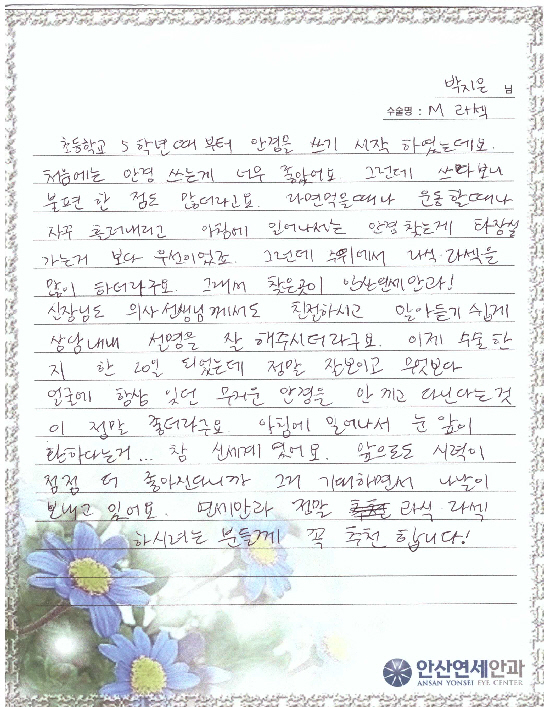 박지은 님
수술명 : M 라섹
초등학교 5학년때 부터 안경을 쓰기 시작 하였는데요.
처음에는 안경 쓰는게 너무 좋았어요. 그런데 쓰다보니
불편 한 점도 많더라고요. 라면먹을때나 운동할때나
자꾸 흘러내리고 아침에 일어나서는 안경찾는게 화장실
가는거 보다 우선이었죠. 그런데 주위에서 라식·라섹을
많이 하더라구요. 그래서 찾은곳이 안산연세안과!
실장님도 의사선생님께서도 친절하시고 알아듣기 쉽게
상담내내 설명을 잘 해주시더라구요. 이제 수술 한
지 한 20일 되었는데 정말 잘보이고 무엇보다
얼굴에 항상 있던 무거운 안경을 안 끼고 다닌다는것
이 정말 좋더라구요. 아침에 일어나서 눈 앞이
환하다는거... 참 신세계 였어요. 앞으로도 시력이
점점 더 좋아진다니까 그거 기대하면서 나날이
보내고 있어요. 연세안과 정말 라식·라섹
하시려는 분들께 꼭 추천 합니다!
안산연세안과
ANSAN YONSEI EYE CENTER